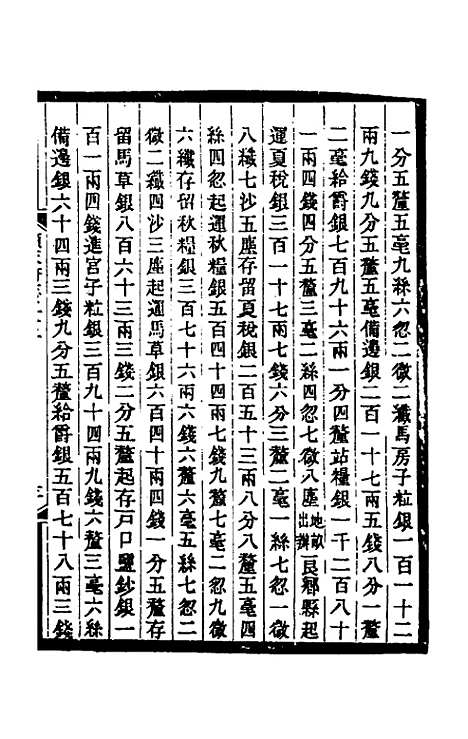 一分五釐五毫九絲六忽二微二纖馬房子粒銀一百一十二
兩九錢九分五釐五毫備邊銀二百一十七兩五錢八分一釐
二毫給爵銀七百九十六兩一分四釐站糧銀一千二百八十
一兩四錢四分五釐三毫二絲四忽七微八塵地畝出辦良鄉縣起
運夏稅銀三百一十七兩七錢六分三釐二毫一絲七忽一微
八纖七沙五塵存留夏稅銀二百五十三兩八分八釐五毫四
絲四忽起運秋糧銀五百四十四兩九錢九釐七毫二忽九微
六纖存留秋糧銀三百七十六兩六錢六釐六毫五絲七忽二
微二纖四沙三塵起運馬草銀六百四十兩四錢一分五釐存
留馬草銀八百六十三兩三錢二分五釐起存戸口鹽鈔銀一
百一兩四錢進宮子粒銀三百九十四兩九錢六釐三毫六絲
備邊銀六十四兩三錢九分五釐給爵銀五百七十八兩三錢